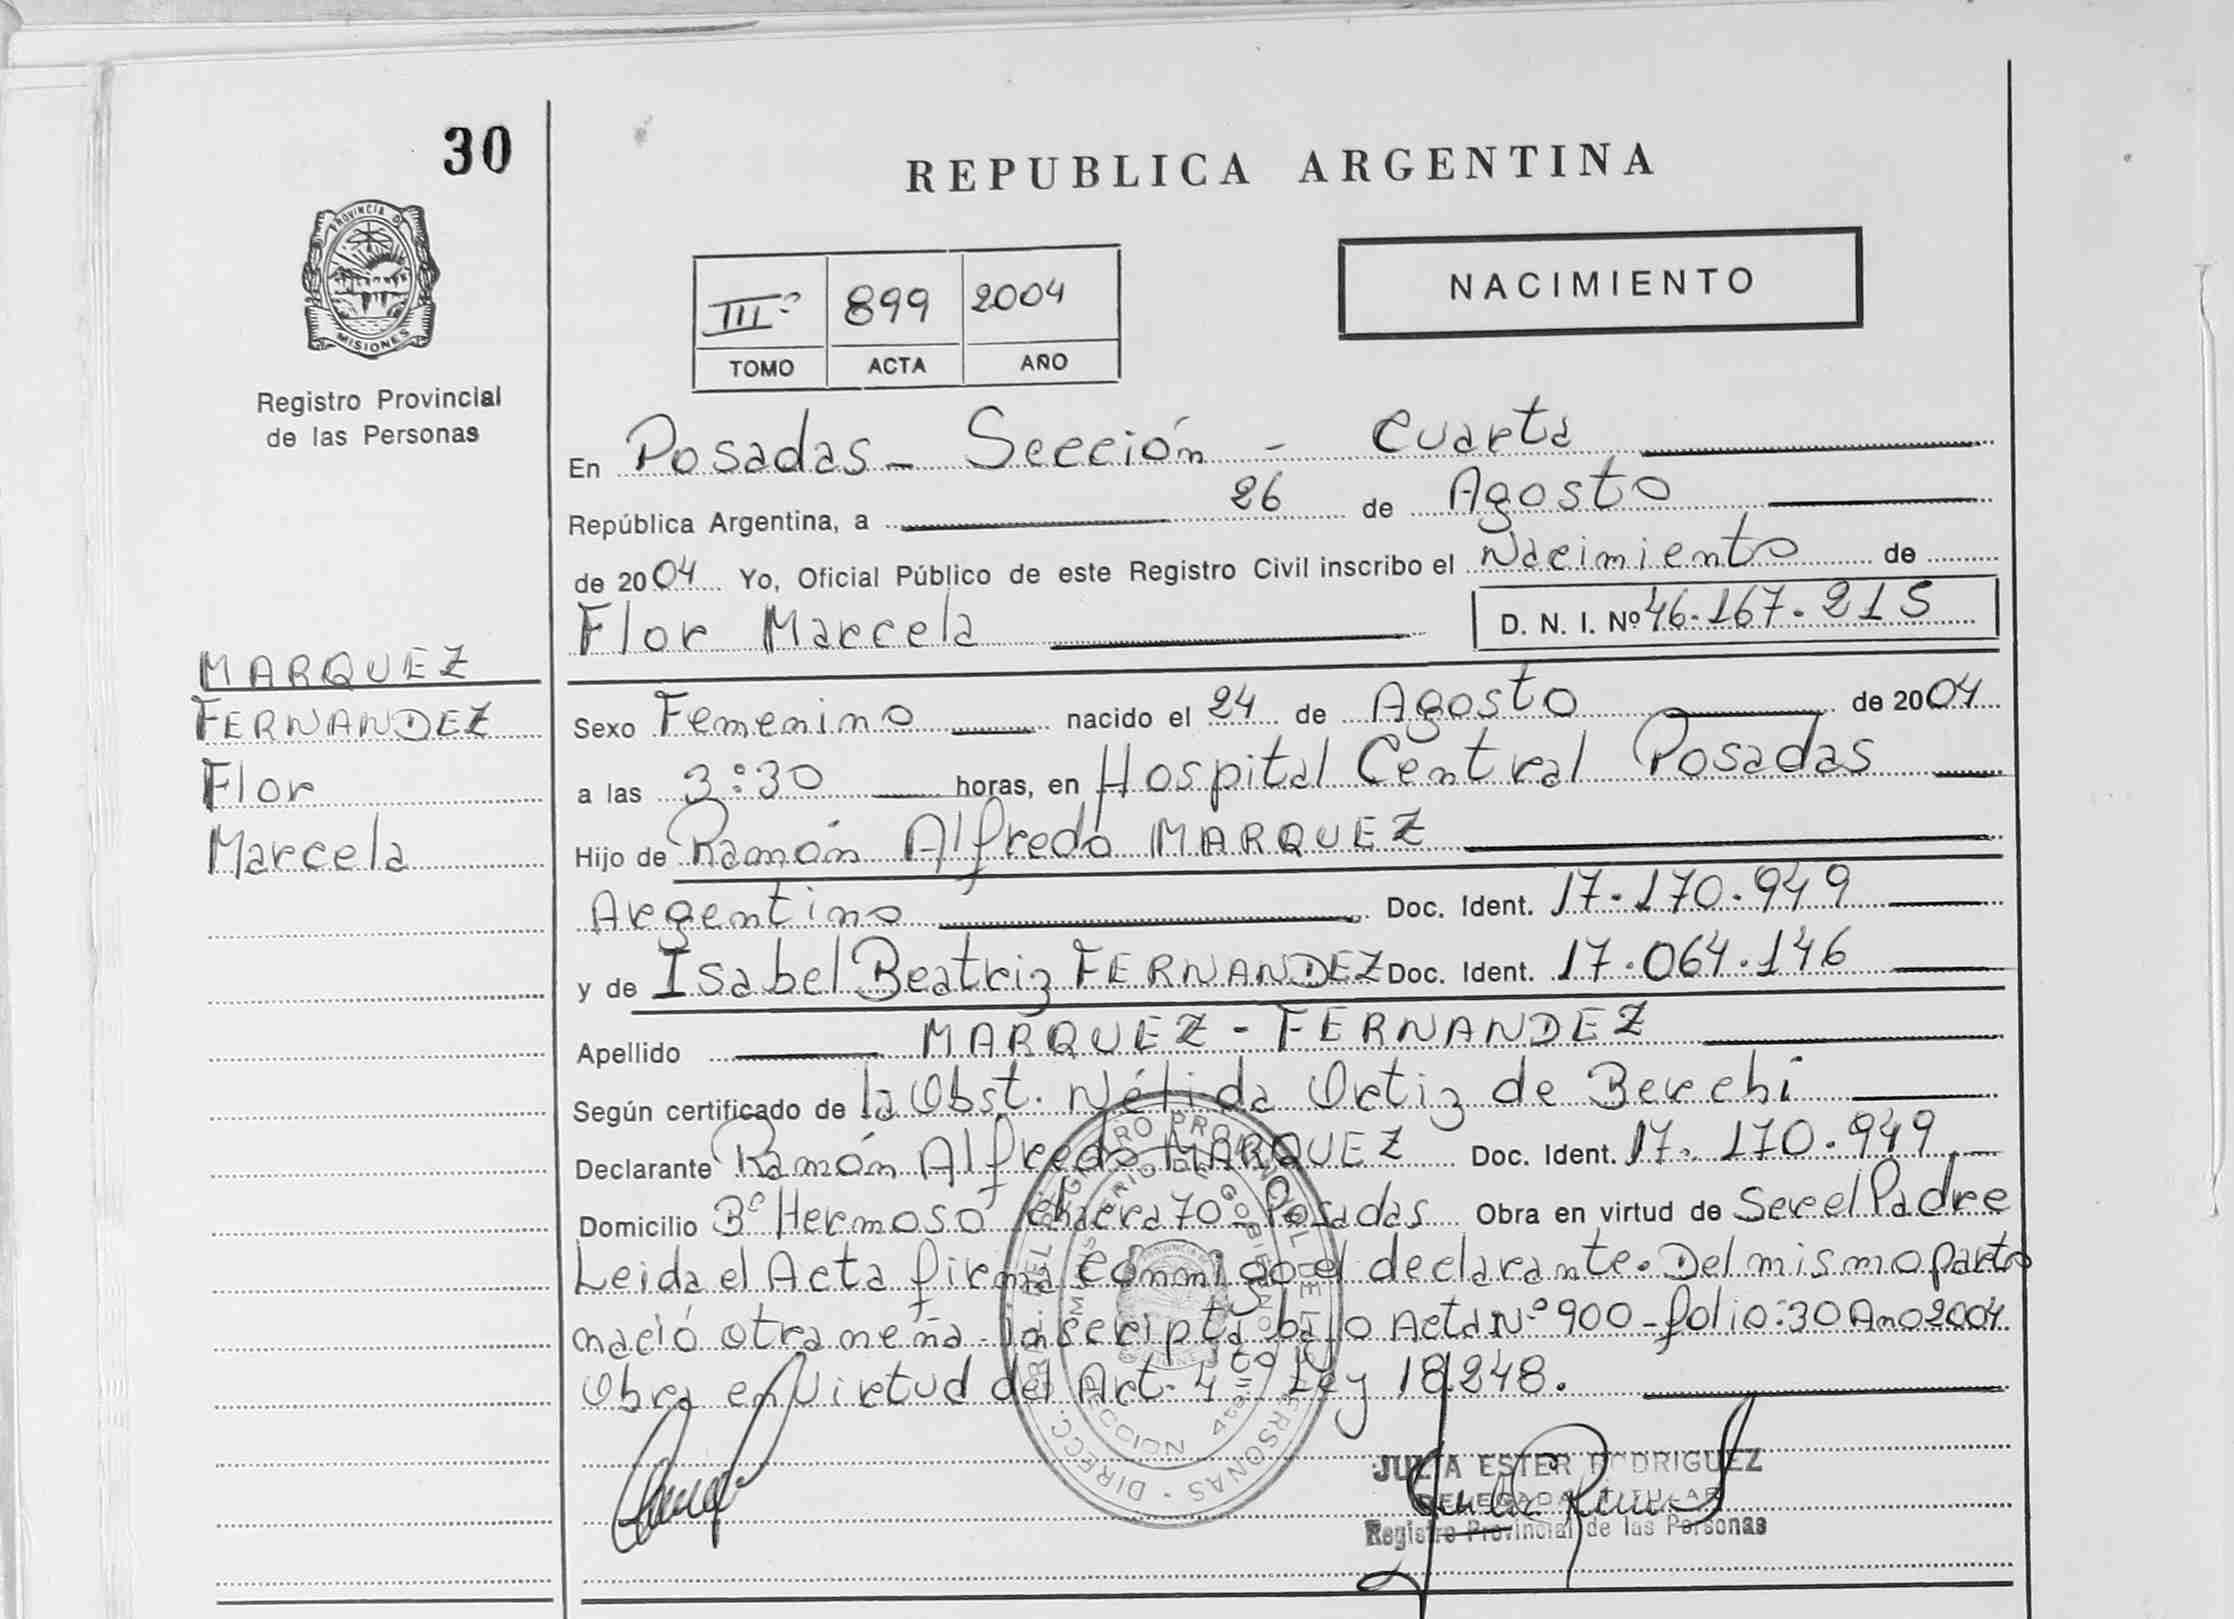 30
REPUBLICA ARGENTINA
PROVINCIA DE
MISIONES
Registro Provincial
de las Personas
NACIMIENTO
III° 899 2004
TOMO ACTA AÑO
En Posadas - Sección - Cuarta
República Argentina, a 26 de Agosto
de 2004 Yo, Oficial Público de este Registro Civil inscribo el Nacimiento de
Flor Marcela D. N. I. Nº 46.167.215
MARQUEZ
FERNANDEZ
Flor
Marcela
Sexo Femenino nacido el 24 de Agosto de 2004
a las 3:30 horas, en Hospital Central Posadas
Hijo de Ramón Alfredo MARQUEZ
Argentino Doc. Ident. 17.170.949
y de Isabel Beatriz FERNANDEZ Doc. Ident. 17.064.146
Apellido MARQUEZ - FERNANDEZ
Según certificado de la Obst. Nélida Ortiz de Berchi
Declarante Ramón Alfredo MARQUEZ Doc. Ident. 17.170.949
Domicilio Bº Hermoso chacra 70 - Posadas Obra en virtud de Ser el Padre
Leida el Acta firma conmigo el declarante. Del mismo parto
nació otra neña. Inscripta bajo Acta Nº 900 - folio: 30 Año 2004
Obra en Virtud del Art. 4to Ley 18.248.
JULIA ESTER RODRIGUEZ
DELEGADA TITULAR
Registro Provincial de las Personas